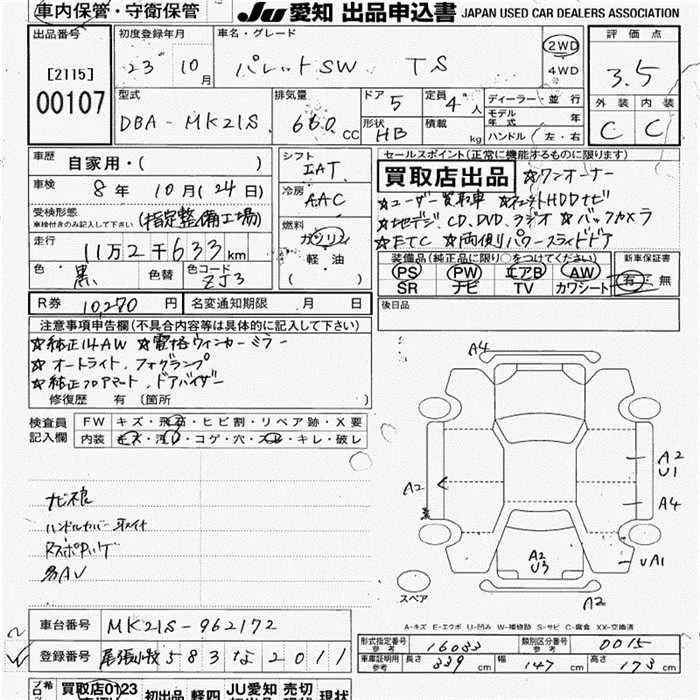 車内保管・守衛保管
JU 愛知 出品申込書 JAPAN USED CAR DEALERS ASSOCIATION
出品番号
[2115]
00107
初度登録年月
23年10月
車名・グレード
パレットSW TS
2WD
4WD
評価点
3.5
外装 内装
C C
型式
DBA-MK21S
排気量
660cc
ドア 5
形状 HB
定員 4人
積載 kg
ディーラー・並行
モデル年式 年
ハンドル(左・右)
車歴 自家用・( )
車検 8年 10月(24日)
受検形態
車検付きのみ記入して下さい
(指定整備工場)
走行 11万2千633km
色 黒 色替 色コード ZJ3
シフト
IAT
冷房
AAC
燃料
ガソリン
軽・油
( )
セールスポイント(正常に機能するものに限ります)
買取店出品 ☆ワンオーナー
☆ユーザー買取車 ☆HDDナビ
☆地デジ、CD、DVD、ラジオ ☆バックカメラ
☆ETC ☆両側パワースライドドア
装備品(純正品に限り○をつけてください)
PS PW エアB AW
SR ナビ TV カワシート
新車保証書
有・無
R券 10,270円 名変通知期限 月 日
後日品
注意事項申告欄(不具合内容等は具体的に記入して下さい)
☆純正14AW ☆電格ウィンカーミラー
☆オートライト、フォグランプ
☆純正フロアマット、ドアバイザー
修復歴 有(箇所 )
検査員記入欄
FW キズ・飛石・ヒビ割・リペア跡・X要
内装 キズ・汚・コゲ・穴・スレ・キレ・破レ
ハンドルカバー
A4
A2
A2
U1
A4
UA1
A2
U3
A2
スペア
A-キズ E-エクボ U-凹み W-補修跡 S-サビ C-腐食 XX-交換済
車台番号 MK21S-962172
登録番号 尾張小牧 583 な 2011
形式指定番号 参考 16033
類別区分番号 参考 0015
車庫証明用 参考 長さ 339cm 幅 147cm 高さ 173cm
希
買取店0123
初出品 軽四 JU愛知 売切 現状